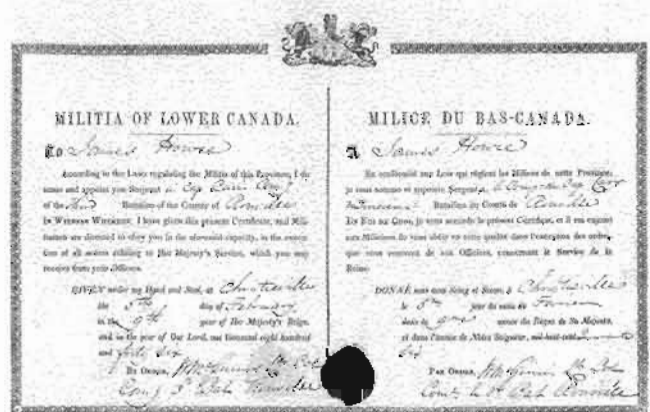 MILITIA OF LOWER CANADA.
To James Howie
According to the Laws regulating the Militia of this Province, I do
name and appoint you Sergeant in Cap
of the third Battalion of the County of Rouville
IN WITNESS WHEREOF, I have given this present Certificate, and Mili-
tiamen are directed to obey you in the aforesaid capacity, in the execu-
tion of all orders relating to Her Majesty's Service, which you may
receive from your Officers.
GIVEN under my Hand and Seal, at Christieville
the 5th day of February
in the 9th year of Her Majesty's Reign,
and in the year of Our Lord, one thousand eight hundred
and forty six
BY ORDER,
Comg 3d Bat Rouville
MILICE DU BAS-CANADA.
A James Howie
En conformité aux Lois qui règlent les Milices de cette Province,
je vous nomme et appointe Sergent
Bataillon du Comté de Rouville
EN FOI DE QUOI, je vous accorde le présent Certificat, et il est enjoint
aux Miliciens de vous obéir en cette qualité dans l'exécution des ordres,
que vous recevrez de vos Officiers, concernant le Service de la
Reine.
DONNÉ sous mon Seing et Sceau, à Christieville
le 5me jour du mois de
dans la 9me année du Règne de Sa Majesté,
et dans l'année de Notre Seigneur, mil-huit-cent
six
PAR ORDRE,
Bat Rouville